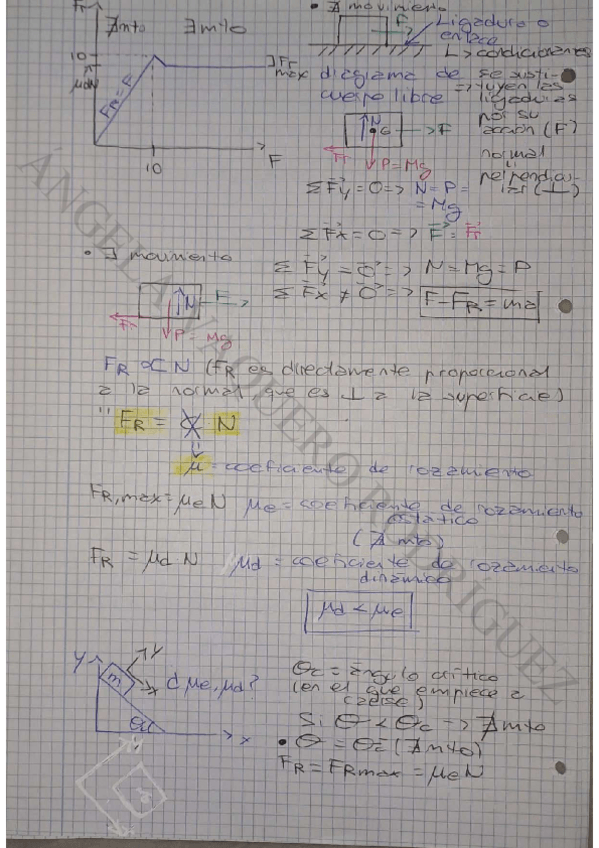 Fr
∄mto ∃mto
10
μdN
FR = F
Fr max
10
F
• ∄ movimiento
F
Ligadura o
enlace
↳ condicionantes
diagrama de
cuerpo libre
se susti-
⇒ tuyen las
ligaduras
por su
acción (F)
normal
perpendicu-
lar (⊥)
N
G
F
Fr
P = Mg
ΣFy = 0 => N = P =
= Mg
ΣFx = 0 => F = Fr
• ∃ movimiento
ΣFy = 0 => N = Mg = P
ΣFx ≠ 0 => F - FR = ma
N
F
Fr
P = Mg
FR ∝ N (FR es directamente proporcional
a la normal que es ⊥ a la superficie)
" FR = ∝ N
μ = coeficiente de rozamiento
FR,max = μeN μe = coeficiente de rozamiento
estático
(∄ mto)
FR = μd · N μd = coeficiente de rozamiento
dinámico
μd < μe
y
m
y
x
¿ μe, μd?
θc
x
θc = ángulo crítico
(en el que empiece a
caerse)
Si θ < θc -> ∄mto
• θ = θc (∄mto)
FR = FRmax = μeN
ÁNGELA VAQUERO RODRÍGUEZ